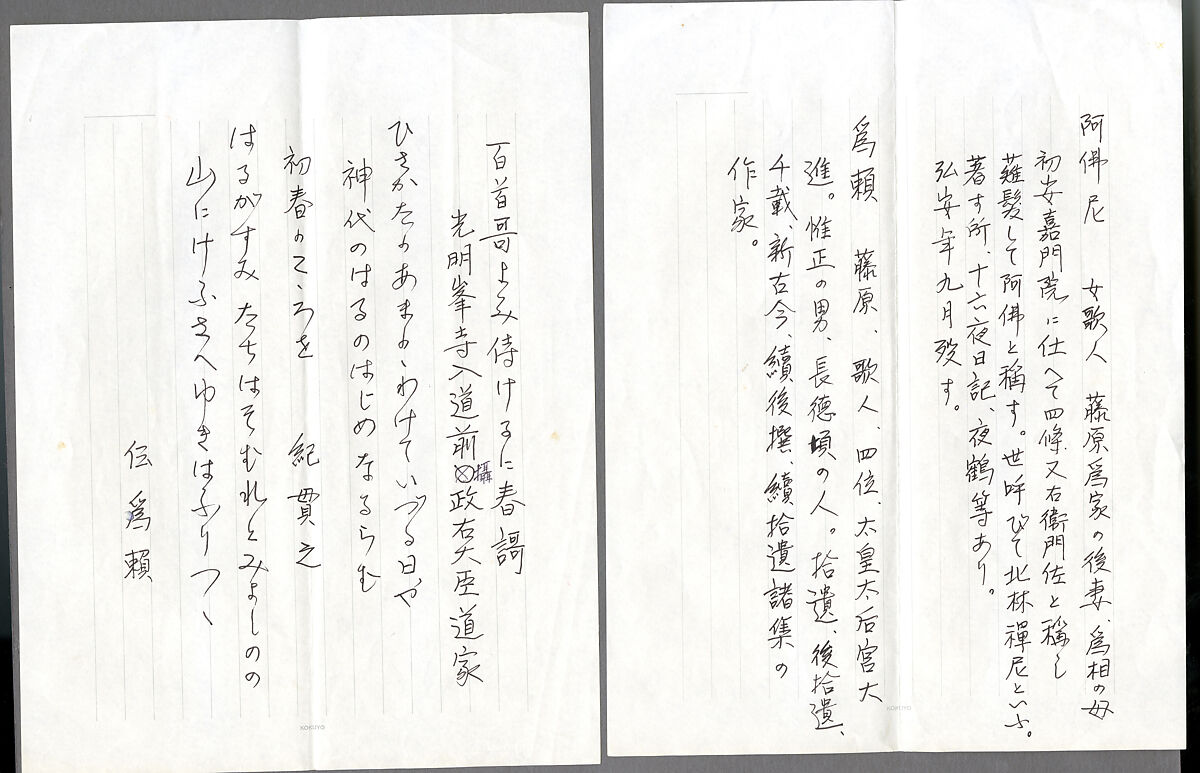 阿佛尼 女歌人 藤原爲家の後妻、爲相の母
初安嘉門院に仕へて四條又右衛門佐と稱し
薙髪して阿佛と稱す。世呼びて北林禪尼といふ。
著す所、十六夜日記、夜鶴等あり。
弘安年九月歿す。
爲頼 藤原、歌人、四位、太皇太后宮大
進。惟正の男、長德頃の人。拾遺、後拾遺、
千載、新古今、續後撰、續拾遺諸集の
作家。
KOKUYO
百首哥よみ侍けるに春謌
光明峯寺入道前攝政右大臣道家
ひさかたのあまのとわけていづる日や
神代のはるのはじめなるらむ
初春のこゝろを 紀貫之
はるがすみたちはそむれとみよしのの
山にけふさへゆきはふりつゝ
伝爲頼
KOKUYO